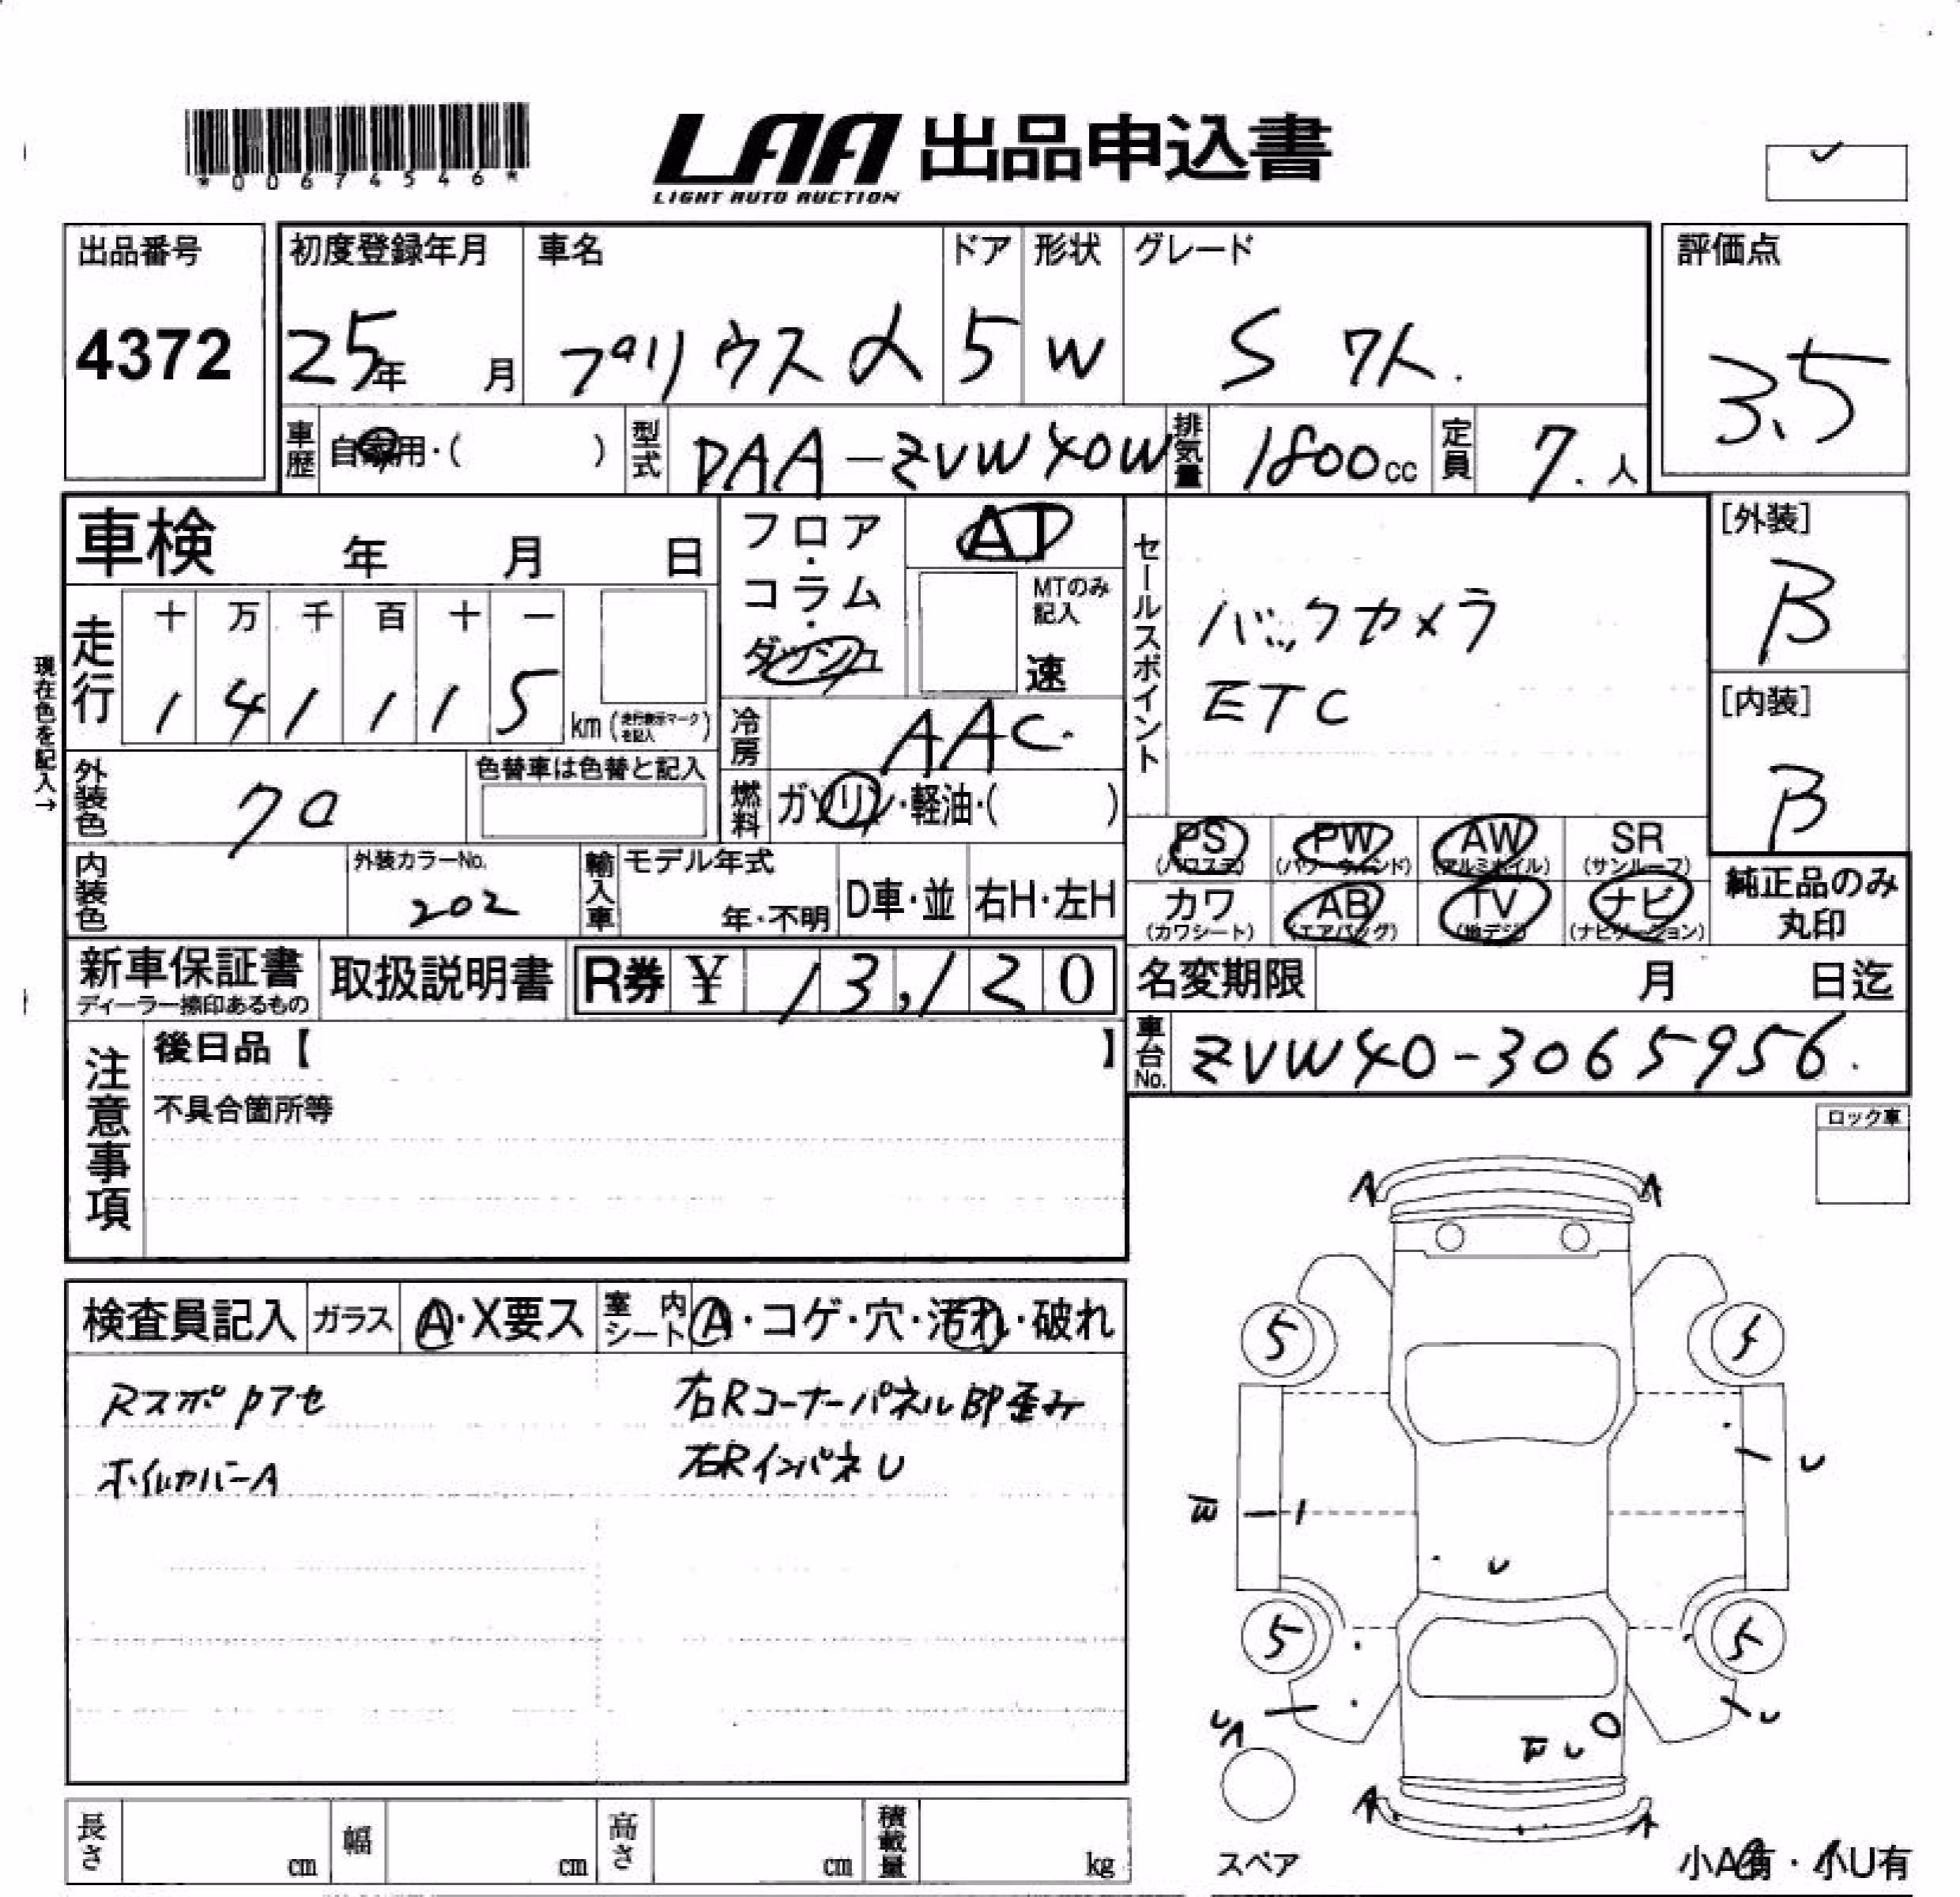 *00674546*
LAA 出品申込書
LIGHT AUTO AUCTION
出品番号
4372
初度登録年月
25年 月
車名
プリウスα
ドア
5
形状
W
グレード
S 7人.
評価点
3.5
車歴
自家用・( )
型式
DAA-ZVW40W
排気量
1800cc
定員
7.人
車検 年 月 日
フロア・コラム・ダッシュ
AT
MTのみ記入
速
セールスポイント
バックカメラ
ETC
[外装]
B
[内装]
B
現在色を記入→
走行
十 万 千 百 十 一
1 4 1 1 1 5
km (走行表示マークを記入)
冷房
AAC.
外装色
クロ
色替車は色替と記入
燃料
ガソリン・軽油・( )
PS (パワステ)
PW (パワーウィンド)
AW (アルミホイル)
SR (サンルーフ)
カワ (カワシート)
AB (エアバッグ)
TV (地デジ)
ナビ (ナビゲーション)
純正品のみ
丸印
内装色
外装カラーNo.
202
輸入車
モデル年式
年・不明
D車・並
右H・左H
新車保証書
ディーラー捺印あるもの
取扱説明書
R券 ¥ 13,120
名変期限 月 日迄
車台No.
ZVW40-3065956.
注意事項
後日品【 】
不具合箇所等
ロック車
検査員記入
ガラス
A・X要ス
室内シート
A・コゲ・穴・汚れ・破れ
Rスポ アセ
ホイルカバーA
右Rコーナーパネル部歪み
右RインパネU
A A
5 4
U
U
5 5
UA U
U
A A
スペア
小A有・小U有
長さ cm
幅 cm
高さ cm
積載量 kg